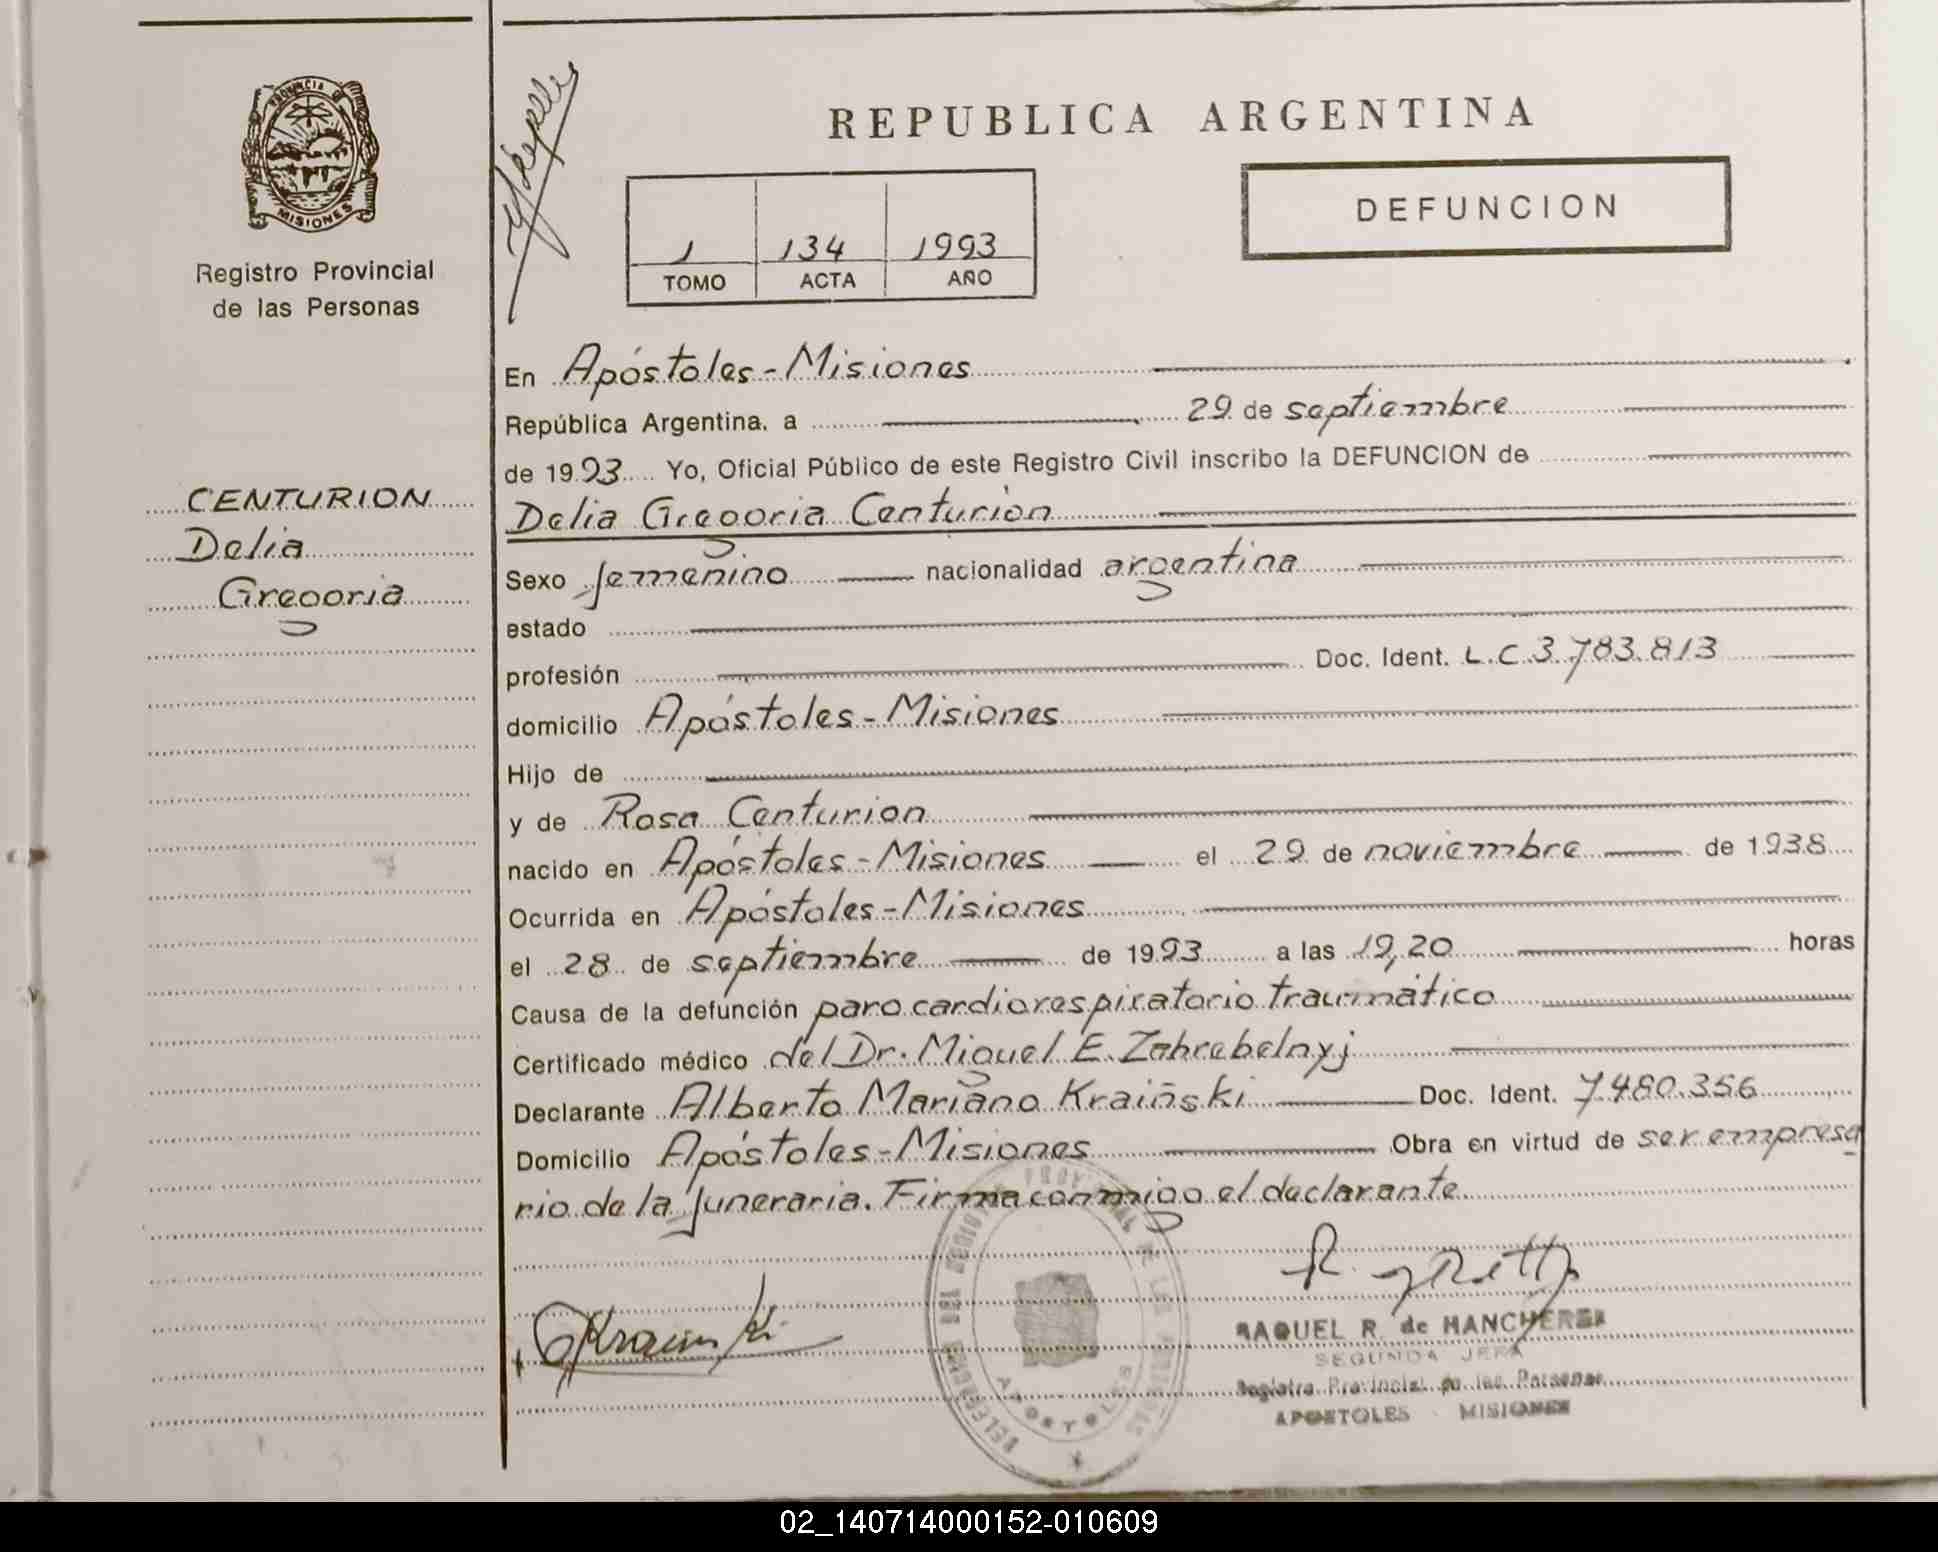 PROVINCIA DE
MISIONES
Registro Provincial
de las Personas
CENTURION
Delia
Gregoria
REPUBLICA ARGENTINA
DEFUNCION
1 134 1993
TOMO ACTA AÑO
En Apóstoles-Misiones
República Argentina, a 29 de septiembre
de 1993 Yo, Oficial Público de este Registro Civil inscribo la DEFUNCION de
Delia Gregoria Centurión
Sexo femenino nacionalidad argentina
estado
profesión Doc. Ident. L.C 3.783.813
domicilio Apóstoles-Misiones
Hijo de
y de Rosa Centurion
nacido en Apóstoles-Misiones el 29 de noviembre de 1938
Ocurrida en Apóstoles-Misiones
el 28 de septiembre de 1993 a las 19,20 horas
Causa de la defunción paro cardiorespiratorio traumático
Certificado médico del Dr. Miguel E. Zahrebelnyj
Declarante Alberto Mariano Kraiñski Doc. Ident. 7.480.356
Domicilio Apóstoles-Misiones Obra en virtud de ser empresa
rio de la funeraria. Firma conmigo el declarante
Krainski
RAQUEL R. de HANCHEREK
SEGUNDA JEFA
Registro Provincial de las Personas
APOSTOLES - MISIONES
APOSTOLES
02_140714000152-010609